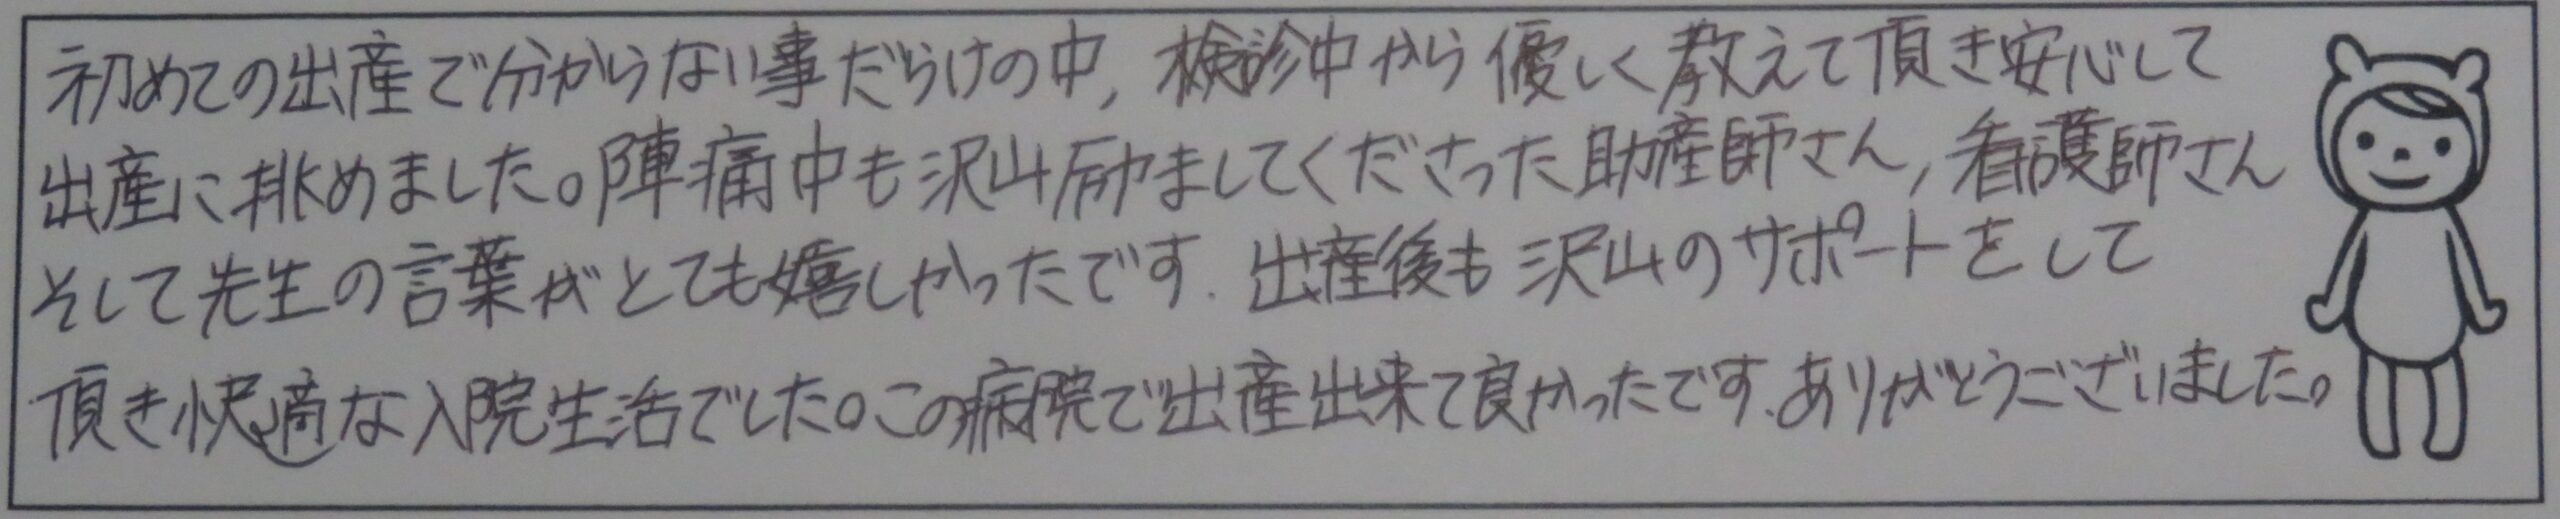 初めての出産で分からない事だらけの中, 検診中から優しく教えて頂き安心して
出産に挑めました。陣痛中も沢山励ましてくださった助産師さん, 看護師さん
そして先生の言葉がとても嬉しかったです. 出産後も沢山のサポートをして
頂き快適な入院生活でした。この病院で出産出来て良かったです.ありがとうございました。